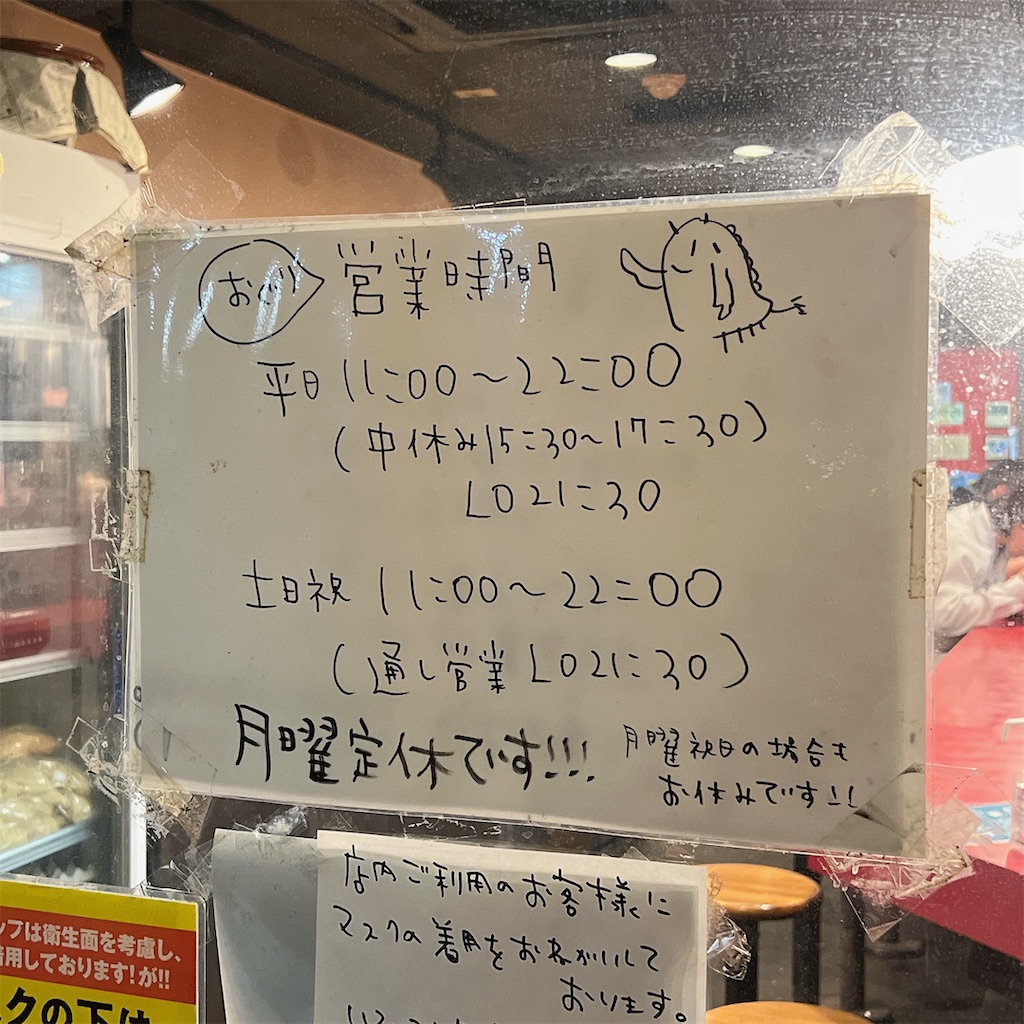 営業時間
平日 11:00～22:00
(中休み15:30～17:30)
LO21:30
土日祝 11:00～22:00
(通し営業 LO21:30)
月曜定休です!!!
月曜祝日の場合も
お休みです!!
店内ご利用のお客様に
マスクの着用をお願いして
おります。
ップは衛生面を考慮し、
用しております!が!!
クの下は